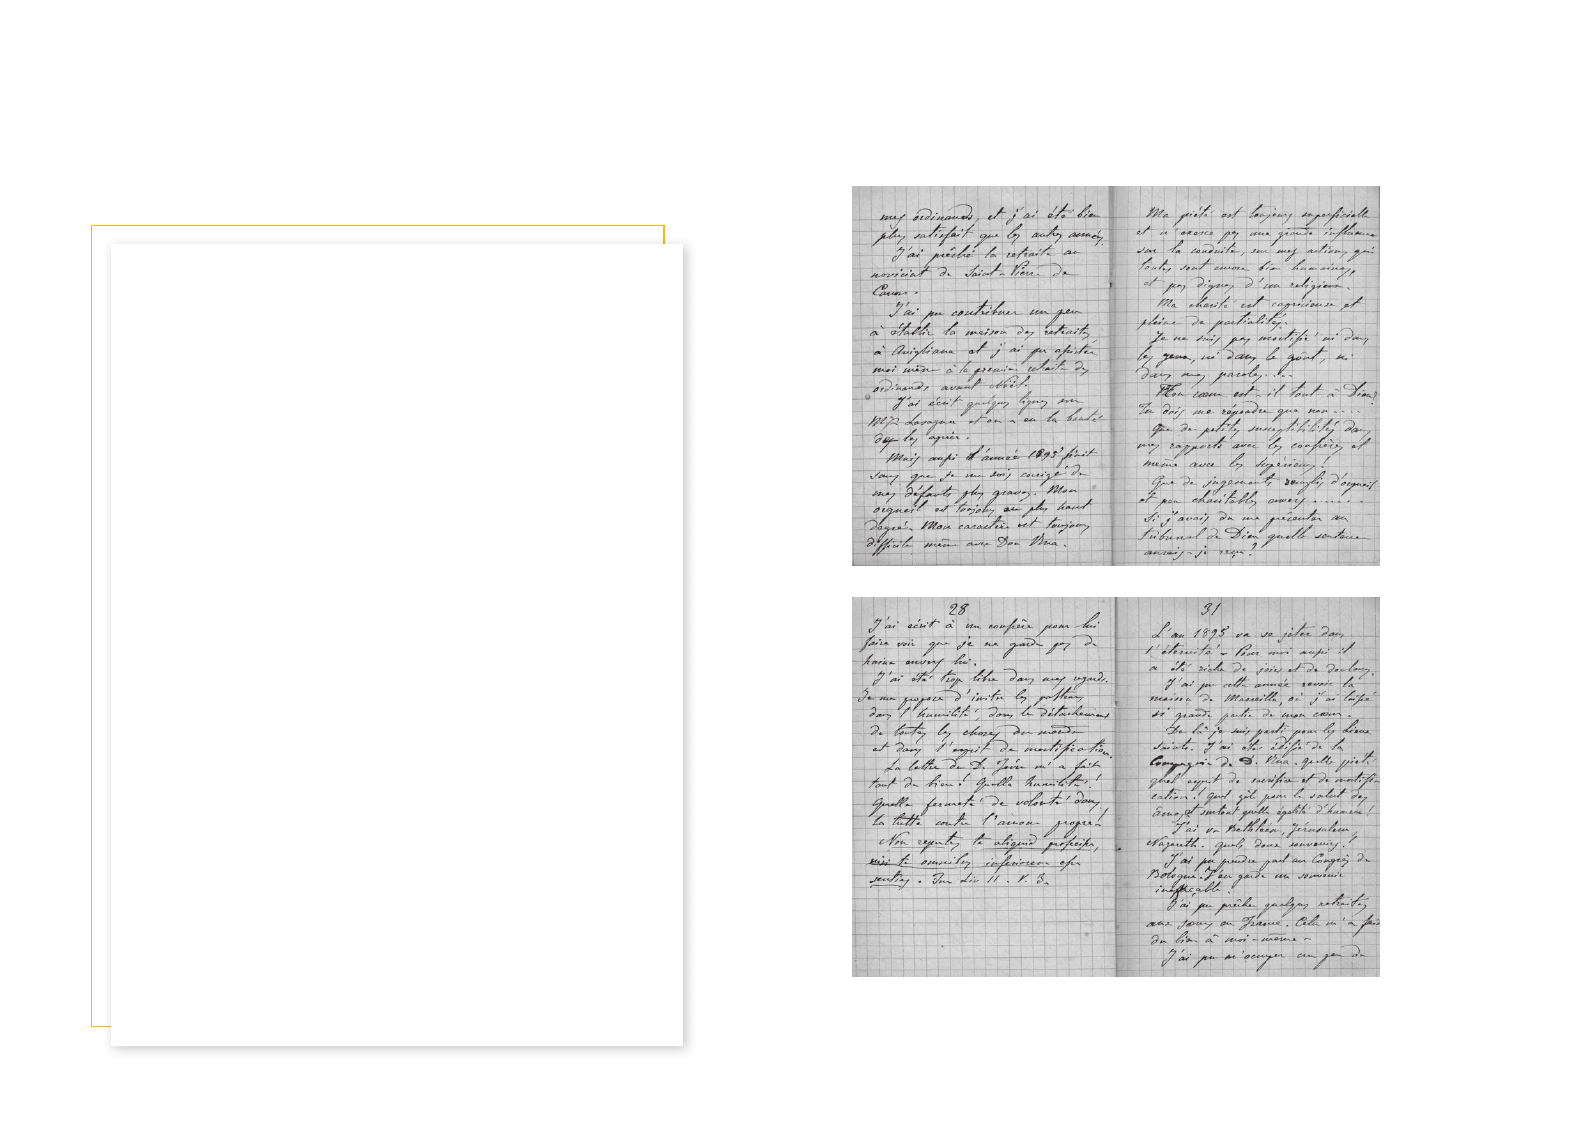 mes ordinands, et j'ai été bien
plus satisfait que les autres années.
J'ai prêché la retraite au
noviciat de Saint-Pierre de
Canon.
J'ai pu contribuer un peu
à établir la maison des retraites
à Avigliana et j'ai pu assister
moi même à la première retraite des
ordinands avant Noël.
J'ai écrit quelques lignes sur
Mgr Lasagna et on a eu la bonté
de les agréer.
Mais aussi l'année 1895 finit
sans que je me sois corrigé de
mes défauts plus graves. Mon
orgueil est toujours au plus haut
degré. Mon caractère est toujours
difficile même avec Don Rua.
Ma piété est toujours superficielle
et n'exerce pas une grande influence
sur la conduite, sur mes actions qui
toutes sont encore bien humaines,
et pas dignes d'un religieux.
Ma charité est capricieuse et
pleine de partialités.
Je ne suis pas mortifié ni dans
les yeux, ni dans le goût, ni
dans mes paroles....
Mon cœur est-il tout à Dieu?
Je dois me répondre que non....
Que de petites susceptibilités dans
mes rapports avec les confrères et
même avec les supérieurs!
Que de jugements remplis d'orgueil
et peu charitables envers......
Si j'avais dû me présenter au
tribunal de Dieu quelle sentence
aurais-je reçue?
28
J'ai écrit à un confrère pour lui
faire voir que je ne garde pas de
haine envers lui.
J'ai été trop libre dans mes regards.
Je me propose d'imiter les pasteurs
dans l'humilité, dans le détachement
de toutes les choses du monde
et dans l'esprit de mortification.
La lettre de D. Febre m'a fait
tant du bien! Quelle humilité!
Quelle fermeté de volonté dans
la lutte contre l'amour propre!
Non reputes te aliquid profecisse,
nisi te omnibus inferiorem esse
sentias. Im Liv II. V. 2.
31
L'an 1895 va se jeter dans
l'éternité. Pour moi aussi il
a été riche de joies et de douleurs.
J'ai pu cette année revoir la
maison de Marseille, où j'ai laissé
si grande partie de mon cœur.
De là je suis parti pour les lieux
saints. J'ai été édifié de la
Compagnie de D. Rua. Quelle piété
quel esprit de sacrifice et de mortifi
cation! Quel zèle pour le salut des
âmes, et surtout quelle égalité d'humeur!
J'ai vu Bethléem, Jérusalem,
Nazareth. Quels doux souvenirs!
J'ai pu prendre part au Congrès de
Bologne. J'en garde un souvenir
ineffaçable.
J'ai pu prêcher quelques retraites
aux sœurs en France. Cela m'a fait
du bien à moi-même.
J'ai pu m'occuper un peu de